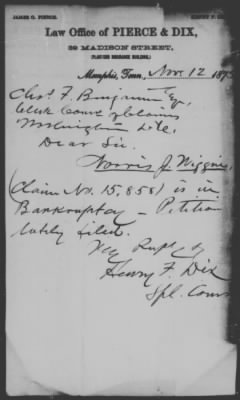 JAMES O. PIERCE. HENRY F. DIX
Law Office of PIERCE & DIX,
39 MADISON STREET,
(PLANTERS INSURANCE BUILDING.)
Memphis, Tenn., Nov. 12 187
Chas. F. Benjamin Esq.
Clerk Com of Claims
Washington
Dear Sir.
Norris J. Wiggins,
(Claim No. 15,858) is in
Bankruptcy – Petition
lately filed.
Very Respt. y
Henry F. Dix
Spl. Com